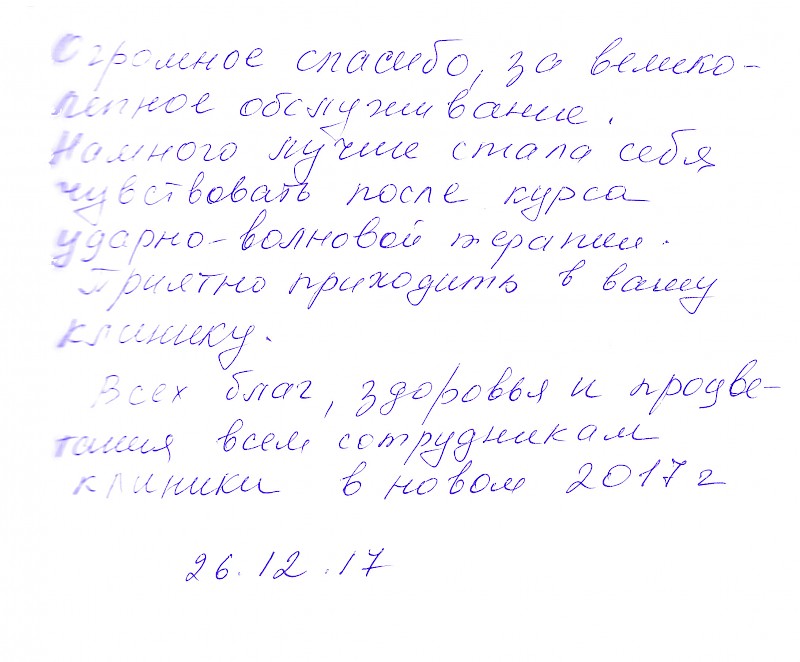 Огромное спасибо, за велико-
лепное обслуживание.
Намного лучше стала себя
чувствовать после курса
ударно-волновой терапии.
Приятно приходить в вашу
клинику.
Всех благ, здоровья и процве-
тания всем сотрудникам
клиники в новом 2017 г
26.12.17